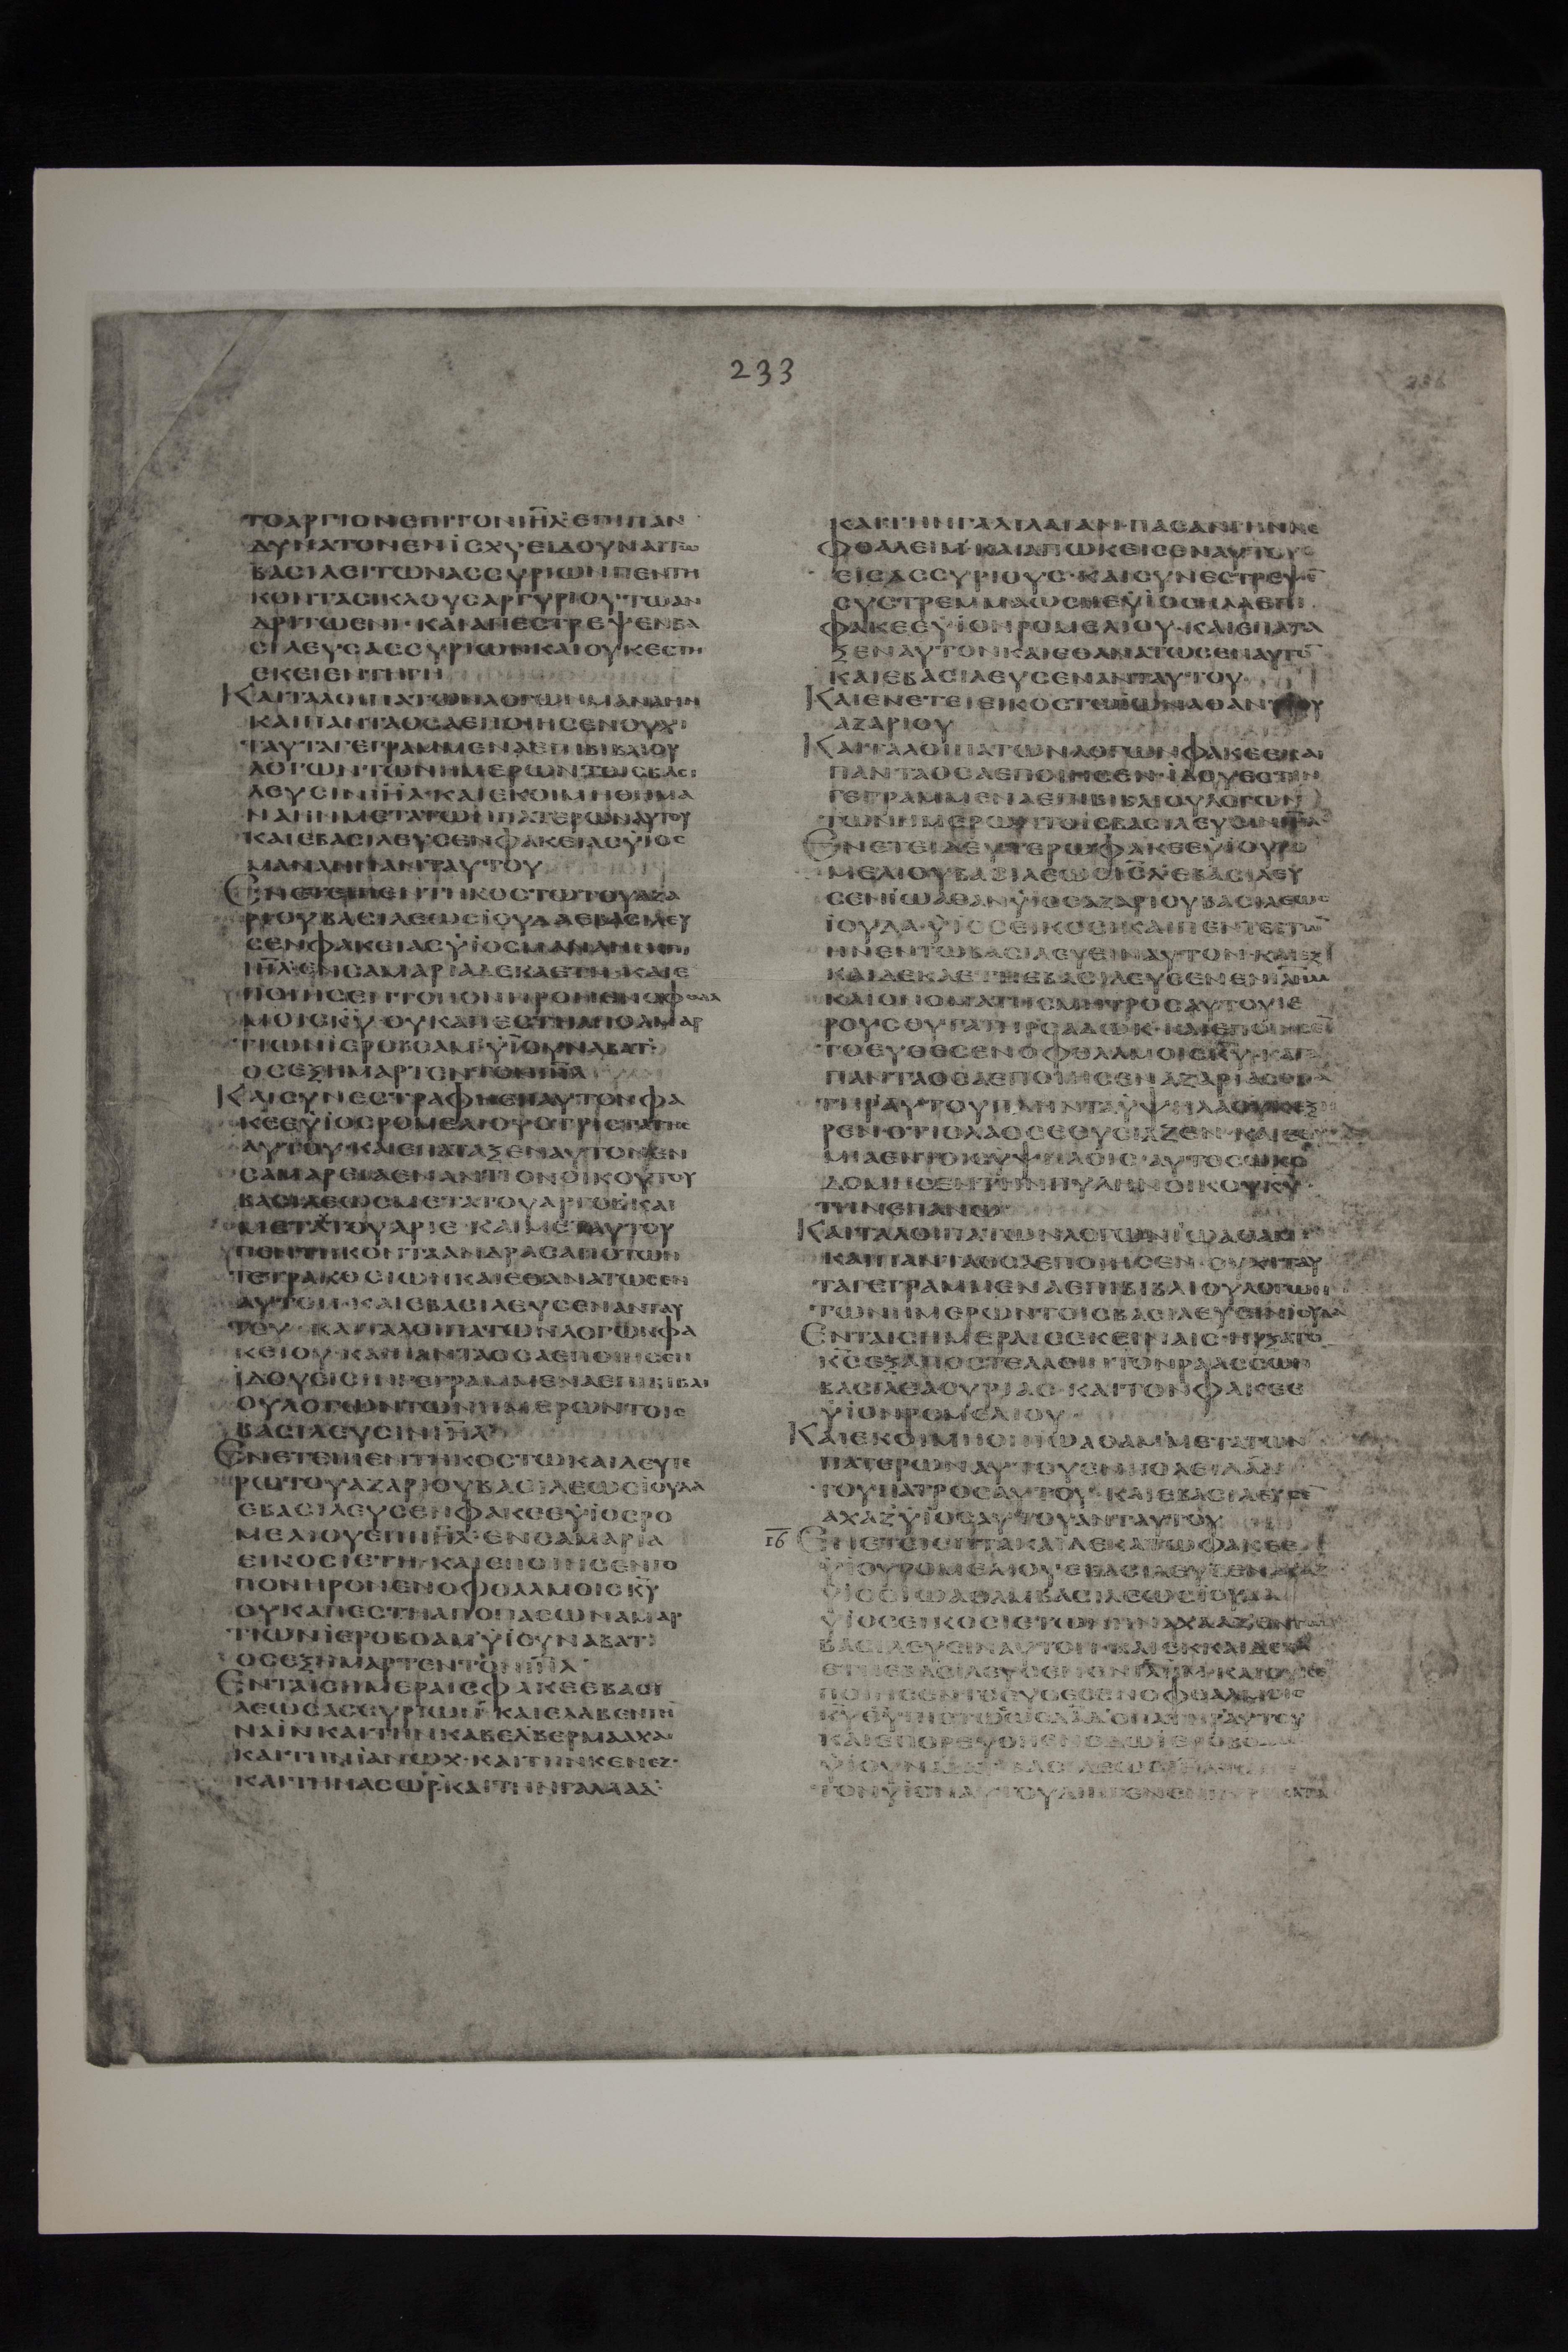 233
236
ΤΟΑΡΓΙΟΝΕΠΙΤΟΝΙΗΛ·ΕΠΙΠΑΝ
ΔΥΝΑΤΟΝΕΝΙΣΧΥΕΙΔΟΥΝΑΙΤΩ
ΒΑCΙΛΕΙΤΩΝΑCCΥΡΙΩΝΠΕΝΤΗ
ΚΟΝΤΑCΙΚΛΟΥCΑΡΓΥΡΙΟΥ·ΤΩΑΝ
ΔΡΙΤΩΕΝΙ·ΚΑΙΑΠΕCΤΡΕΨΕΝΒΑ
CΙΛΕΥCΑCCΥΡΙΩΝΚΑΙΟΥΚΕCΤΗ
ΕΚΕΙΕΝΤΗΓΗ
ΚΑΙΤΑΛΟΙΠΑΤΩΝΛΟΓΩΝΜΑΝΑΗΜ
ΚΑΙΠΑΝΤΑΟCΑΕΠΟΙΗCΕΝΟΥΧΙ
ΤΑΥΤΑΓΕΓΡΑΜΜΕΝΑΕΠΙΒΙΒΛΙΟΥ
ΛΟΓΩΝΤΩΝΗΜΕΡΩΝΤΟΙCΒΑCΙ
ΛΕΥCΙΝΙΗΛ·ΚΑΙΕΚΟΙΜΗΘΗΜΑ
ΝΑΗΜΜΕΤΑΤΩΝΠΑΤΕΡΩΝΑΥΤΟΥ
ΚΑΙΕΒΑCΙΛΕΥCΕΝΦΑΚΕΙΑCΥΙΟC
ΜΑΝΑΗΜΑΝΤΑΥΤΟΥ
ΕΝΕΤΕΙΠΕΝΤΗΚΟCΤΩΤΟΥΑΖΑ
ΡΙΟΥΒΑCΙΛΕΩCΙΟΥΔΑΕΒΑCΙΛΕΥ
CΕΝΦΑΚΕΙΑCΥΙΟCΜΑΝΑΗΜΕΠΙ
ΙΗΛ·ΕΝCΑΜΑΡΙΑΔΕΚΑΕΤΗ·ΚΑΙΕ
ΠΟΙΗCΕΝΤΟΠΟΝΗΡΟΝΕΝΟΦΘΑΛ
ΜΟΙCΚΥ·ΟΥΚΑΠΕCΤΗΑΠΟΑΜΑΡ
ΤΙΩΝΙΕΡΟΒΟΑΜ·ΥΙΟΥΝΑΒΑΤ·
ΟCΕΞΗΜΑΡΤΕΝΤΟΝΙΗΛ
ΚΑΙCΥΝΕCΤΡΑΦΗΕΠΑΥΤΟΝΦΑ
ΚΕΕΥΙΟCΡΟΜΕΛΙΟΥΟΤΡΙCΤΑΤΗC
ΑΥΤΟΥ·ΚΑΙΕΠΑΤΑΞΕΝΑΥΤΟΝΕΝ
CΑΜΑΡΕΙΑΕΝΑΝΤΙΟΝΟΙΚΟΥΤΟΥ
ΒΑCΙΛΕΩCΜΕΤΑΤΟΥΑΡΓΟΒΚΑΙ
ΜΕΤΑΤΟΥΑΡΙΕ·ΚΑΙΜΕΤΑΥΤΟΥ
ΠΕΝΤΗΚΟΝΤΑΑΝΔΡΑCΑΠΟΤΩΝ
ΤΕΤΡΑΚΟCΙΩΝΚΑΙΕΘΑΝΑΤΩCΕΝ
ΑΥΤΟΝ·ΚΑΙΕΒΑCΙΛΕΥCΕΝΑΝΤΑΥ
ΤΟΥ·ΚΑΙΤΑΛΟΙΠΑΤΩΝΛΟΓΩΝΦΑ
ΚΕΙΟΥ·ΚΑΙΠΑΝΤΑΟCΑΕΠΟΙΗCΕΝ
ΙΔΟΥΕΙCΙΝΓΕΓΡΑΜΜΕΝΑΕΠΙΒΙΒΛΙ
ΟΥΛΟΓΩΝΤΩΝΗΜΕΡΩΝΤΟΙC
ΒΑCΙΛΕΥCΙΝΙΗΛ
ΕΝΕΤΕΙΠΕΝΤΗΚΟCΤΩΚΑΙΔΕΥΤΕ
ΡΩΤΟΥΑΖΑΡΙΟΥΒΑCΙΛΕΩCΙΟΥΔΑ
ΕΒΑCΙΛΕΥCΕΝΦΑΚΕΕΥΙΟCΡΟ
ΜΕΛΙΟΥΕΠΙΙΗΛ·ΕΝCΑΜΑΡΙΑ
ΕΙΚΟCΙΕΤΗ·ΚΑΙΕΠΟΙΗCΕΝΤΟ
ΠΟΝΗΡΟΝΕΝΟΦΘΑΛΜΟΙCΚΥ
ΟΥΚΑΠΕCΤΗΑΠΟΠΑCΩΝΑΜΑΡ
ΤΙΩΝΙΕΡΟΒΟΑΜΥΙΟΥΝΑΒΑΤ·
ΟCΕΞΗΜΑΡΤΕΝΤΟΝΙΗΛ
ΕΝΤΑΙCΗΜΕΡΑΙCΦΑΚΕΕΒΑCΙ
ΛΕΩCΑCCΥΡΙΩΝ·ΚΑΙΕΛΑΒΕΝΤΗ
ΝΑΙΝΚΑΙΤΗΝΚΑΒΕΛΒΕΡΜΑΑΧΑ
ΚΑΙΤΗΝΙΑΝΩΧ·ΚΑΙΤΗΝΚΕΝΕΖ·
ΚΑΙΤΗΝΑCΩΡ·ΚΑΙΤΗΝΓΑΛΑΑΔ
ΚΑΙΤΗΝΓΑΛΙΛΑΙΑΝ·ΠΑCΑΝΓΗΝΝΕ
ΦΘΑΛΕΙΜ·ΚΑΙΑΠΩΚΕΙCΕΝΑΥΤΟΥC
ΕΙCΑCCΥΡΙΟΥC·ΚΑΙCΥΝΕCΤΡΕΨΕ
CΥCΤΡΕΜΜΑΩCΗΕΥΙΟCΗΛΑΕΠΙ
ΦΑΚΕΕΥΙΟΝΡΟΜΕΛΙΟΥ·ΚΑΙΕΠΑΤΑ
ΞΕΝΑΥΤΟΝΚΑΙΕΘΑΝΑΤΩCΕΝΑΥΤΟ
ΚΑΙΕΒΑCΙΛΕΥCΕΝΑΝΤΑΥΤΟΥ
ΚΑΙΕΝΕΤΕΙΕΙΚΟCΤΩΙΩΝΑΘΑΝ
ΑΖΑΡΙΟΥ
ΚΑΙΤΑΛΟΙΠΑΤΩΝΛΟΓΩΝΦΑΚΕΕΚΑΙ
ΠΑΝΤΑΟCΑΕΠΟΙΗCΕΝ·ΙΔΟΥΕCΤΙΝ
ΓΕΓΡΑΜΜΕΝΑΕΠΙΒΙΒΛΙΟΥΛΟΓΩΝ
ΤΩΝΗΜΕΡΩΝΤΟΙCΒΑCΙΛΕΥCΙΝΙΗΛ
ΕΝΕΤΕΙΔΕΥΤΕΡΩΦΑΚΕΕΥΙΟΥΡΟ
ΜΕΛΙΟΥΒΑCΙΛΕΩCΙΗΛ·ΕΒΑCΙΛΕΥ
CΕΝΙΩΑΘΑΝΥΙΟCΑΖΑΡΙΟΥΒΑCΙΛΕΩC
ΙΟΥΔΑ·ΥΙΟCΕΙΚΟCΙΚΑΙΠΕΝΤΕΕΤΩ
ΗΝΕΝΤΩΒΑCΙΛΕΥΕΙΝΑΥΤΟΝ·ΚΑΙΕΞ
ΚΑΙΔΕΚΑΕΤΗΕΒΑCΙΛΕΥCΕΝΕΝΙΛΗΜ
ΚΑΙΟΝΟΜΑΤΗCΜΗΤΡΟCΑΥΤΟΥΙΕ
ΡΟΥCΘΥΓΑΤΗΡCΑΔΩΚ·ΚΑΙΕΠΟΙΗCΕ
ΤΟΕΥΘΕCΕΝΟΦΘΑΛΜΟΙCΚΥ·ΚΑΤΑ
ΠΑΝΤΑΟCΑΕΠΟΙΗCΕΝΑΖΑΡΙΑCΟΠΑ
ΤΗΡΑΥΤΟΥΠΛΗΝΤΑΥΨΗΛΑΟΥΚΕΞΗ
ΡΕΝ·ΟΤΙΟΛΑΟCΕΘΥCΙΑΖΕΝ·ΚΑΙΕΘΥ
ΜΙΑΕΝΤΟΙCΥΨΗΛΟΙC·ΑΥΤΟCΩΚΟ
ΔΟΜΗCΕΝΤΗΝΠΥΛΗΝΟΙΚΟΥΚΥ
ΤΗΝΕΠΑΝΩ
ΚΑΙΤΑΛΟΙΠΑΤΩΝΛΟΓΩΝΙΩΑΘΑΜ
ΚΑΙΠΑΝΤΑΟCΑΕΠΟΙΗCΕΝ·ΟΥΧΙΤΑΥ
ΤΑΓΕΓΡΑΜΜΕΝΑΕΠΙΒΙΒΛΙΟΥΛΟΓΩΝ
ΤΩΝΗΜΕΡΩΝΤΟΙCΒΑCΙΛΕΥCΙΝΙΟΥΔΑ
ΕΝΤΑΙCΗΜΕΡΑΙCΕΚΕΙΝΑΙC·ΗΡΞΑΤΟ
ΚCΕΞΑΠΟCΤΕΛΛΕΙΝΤΟΝΡΑΑCCΩΝ
ΒΑCΙΛΕΑCΥΡΙΑC·ΚΑΙΤΟΝΦΑΚΕΕ
ΥΙΟΝΡΟΜΕΛΙΟΥ·
ΚΑΙΕΚΟΙΜΗΘΗΙΩΑΘΑΜ·ΜΕΤΑΤΩΝ
ΠΑΤΕΡΩΝΑΥΤΟΥΕΝΠΟΛΕΙΔΑΔ
ΤΟΥΠΑΤΡΟCΑΥΤΟΥ·ΚΑΙΕΒΑCΙΛΕΥCΕ
ΑΧΑΖΥΙΟCΑΥΤΟΥΑΝΤΑΥΤΟΥ
16 ΕΝΕΤΕΙΕΠΤΑΚΑΙΔΕΚΑΤΩΦΑΚΕΕ
ΥΙΟΥΡΟΜΕΛΙΟΥ·ΕΒΑCΙΛΕΥCΕΝΑΧΑΖ
ΥΙΟCΙΩΑΘΑΜΒΑCΙΛΕΩCΙΟΥΔΑ
ΥΙΟCΕΙΚΟCΙΕΤΩΝΗΝΑΧΑΑΖΕΝΤΩ
ΒΑCΙΛΕΥΕΙΝΑΥΤΟΝ·ΚΑΙΕΚΚΑΙΔΕΚΑ
ΕΤΗΕΒΑCΙΛΕΥCΕΝΕΝΙΛΗΜ·ΚΑΙΟΥΚΕ
ΠΟΙΗCΕΝΤΟΕΥΘΕCΕΝΟΦΘΑΛΜΟΙC
ΚΥΘΥΠΙCΤΩCΩCΔΑΔΟΠΑΤΗΡΑΥΤΟΥ
ΚΑΙΕΠΟΡΕΥΘΗΕΝΟΔΩΙΕΡΟΒΟ
ΥΙΟΥΝΑΒΑΤ ΒΑCΙΛΕΩC
ΤΟΝΥΙΟΝΑΥΤΟΥΔΙΗΓΕΝΕΝ